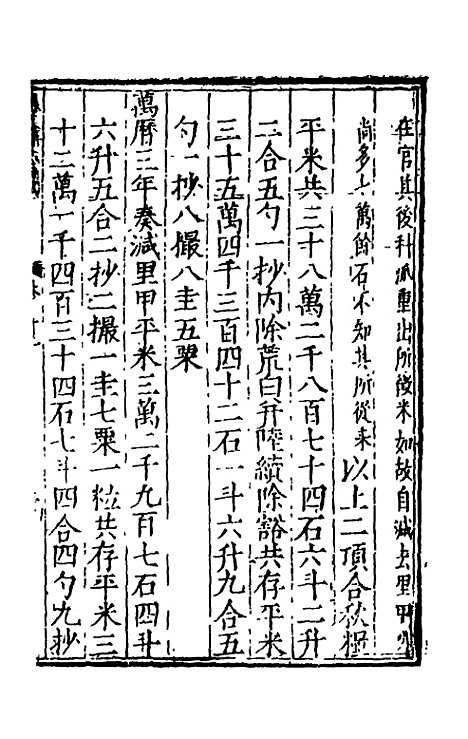 在官其後科派重出所徵米如故自減去里甲外
尚多六萬餘石不知其所從來以上二項合秋糧
平米共三十八萬二千八百七十四石六斗二升
二合五勺一抄內除荒白并陸續除豁共存平米
三十五萬四千三百四十二石一斗六升九合五
勺一抄八撮八圭五粟
萬曆三年奏減里甲平米三萬二千九百七石四斗
六升五合二抄二撮一圭七粟一粒共存平米三
十二萬一千四百三十四石七斗四合四勺九抄